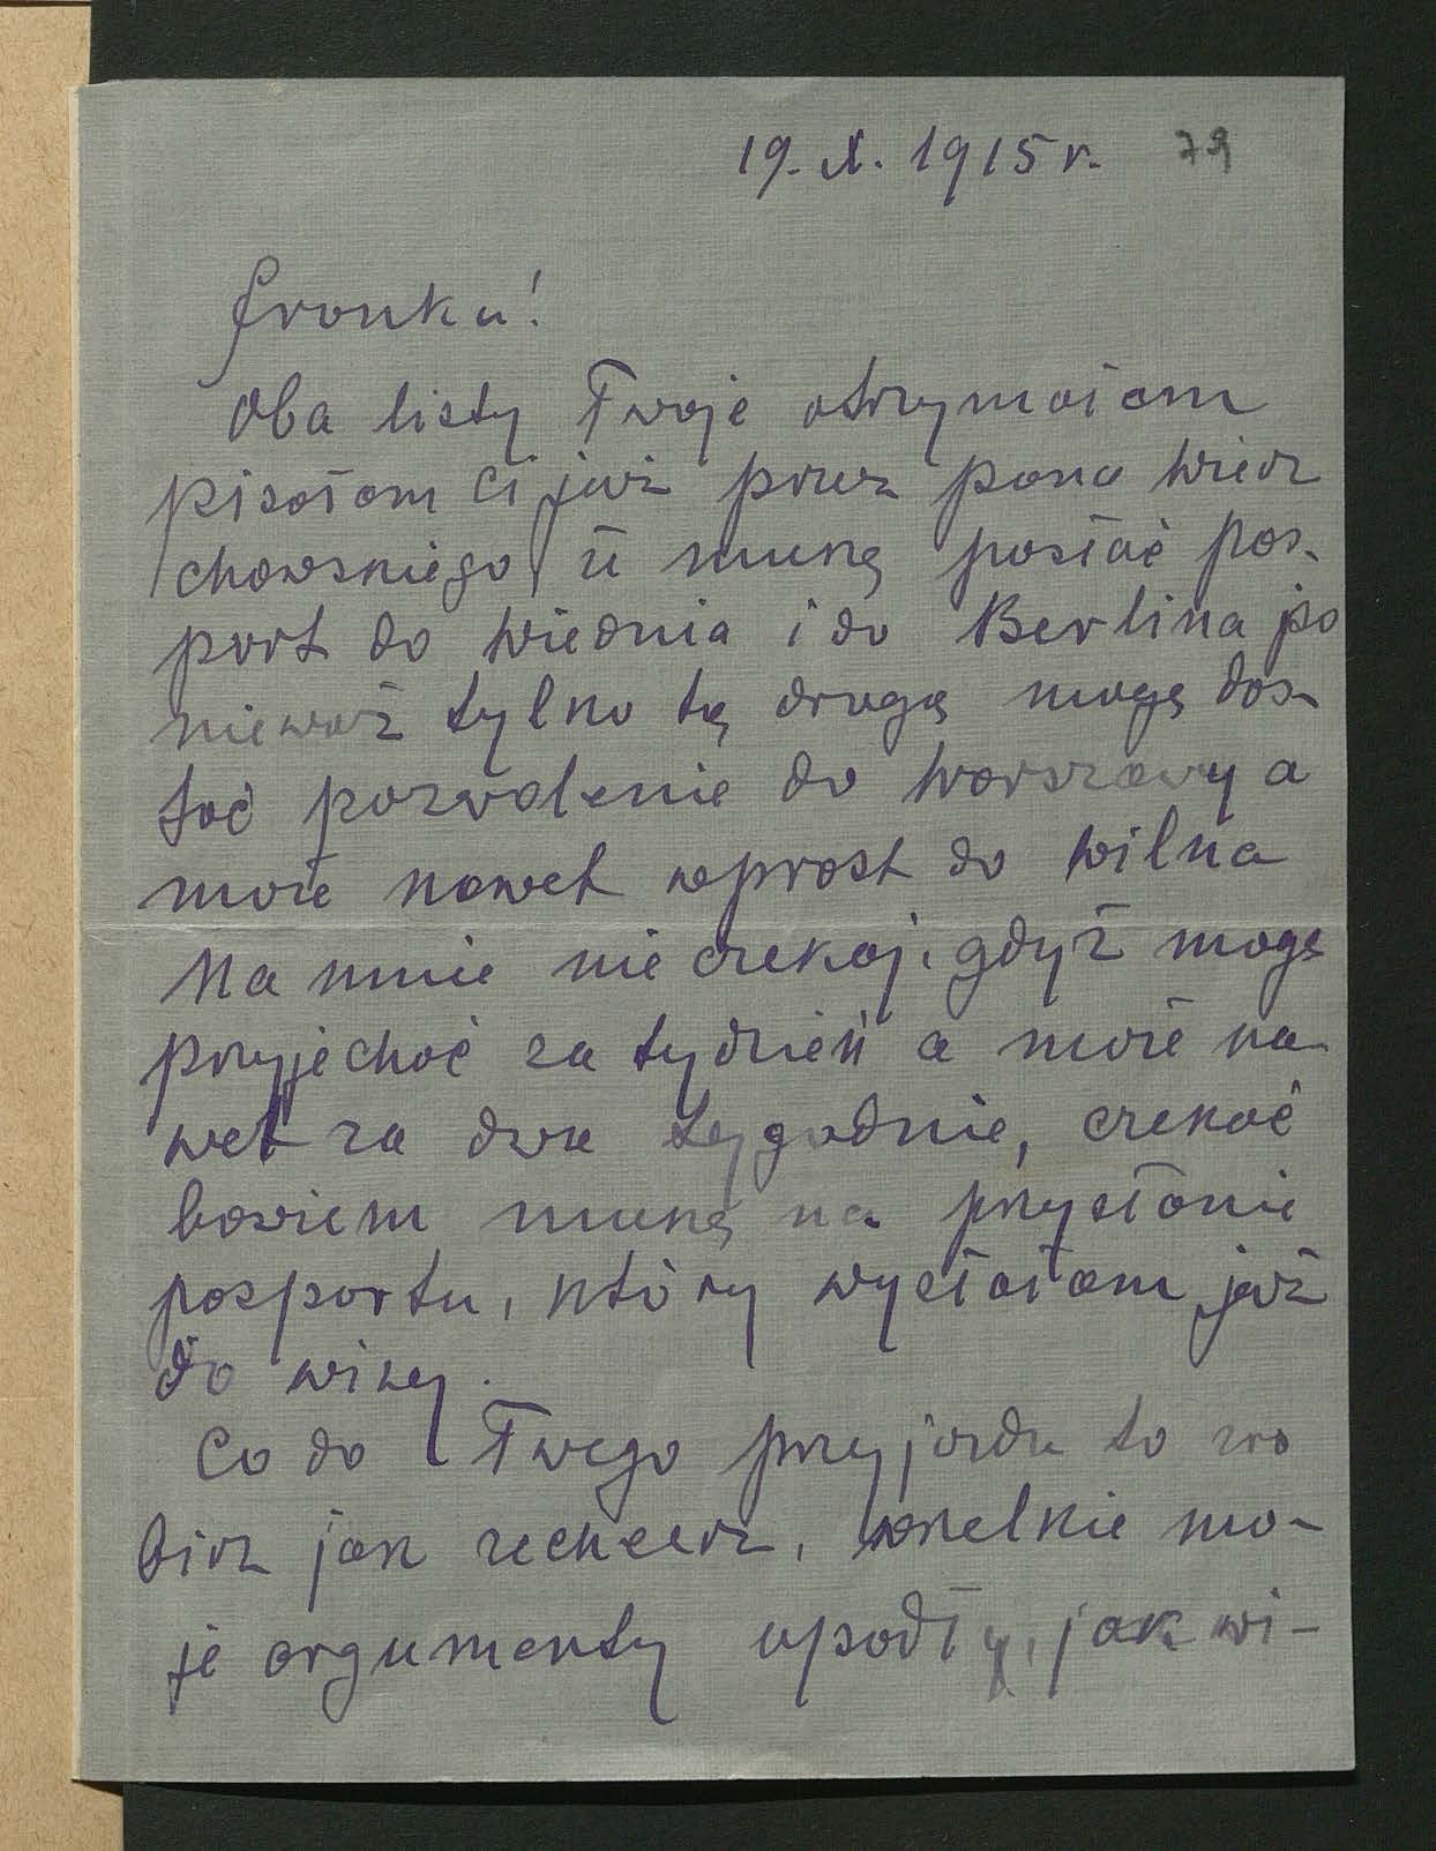 19. X. 1915 r. 79
Franku!
Oba listy Twoje otrzymałam
pisałam Ci już przez pana Wierz
chowskiego że muszę posłać pas-
port do Wiednia i do Berlina po
nieważ tylko tą drogą mogę dos-
tać pozwolenie do Warszawy a
może nawet wprost do Wilna
Na mnie nie czekaj, gdyż mogę
przyjechać za tydzień a może na-
wet za dwa tygodnie, czekać
bowiem muszę na przysłanie
pasportu, który wysłałam już
do wizy.
Co do Twego przyjazdu to zro
bisz jak zechcesz, wszelkie mo-
je argumenty upadły, jak wi-